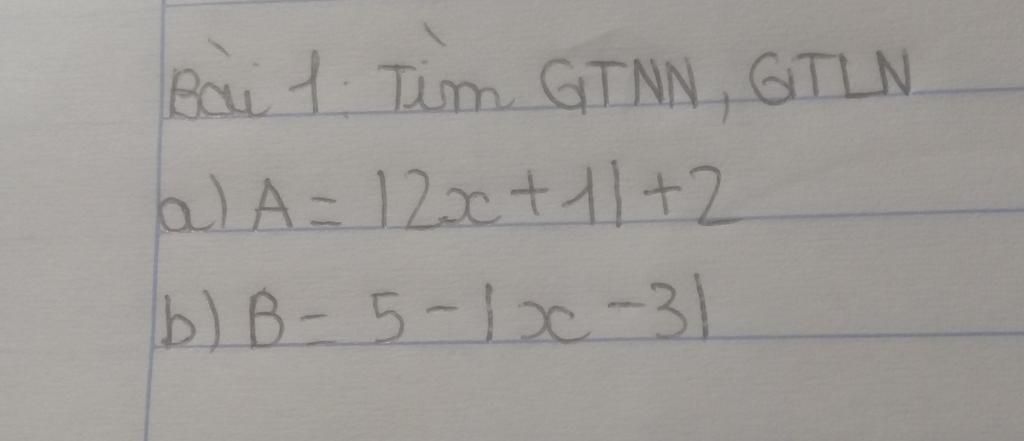 Bài 1: Tìm GTNN, GTLN
a) A = |2x + 1| + 2
b) B = 5 - |x - 3|